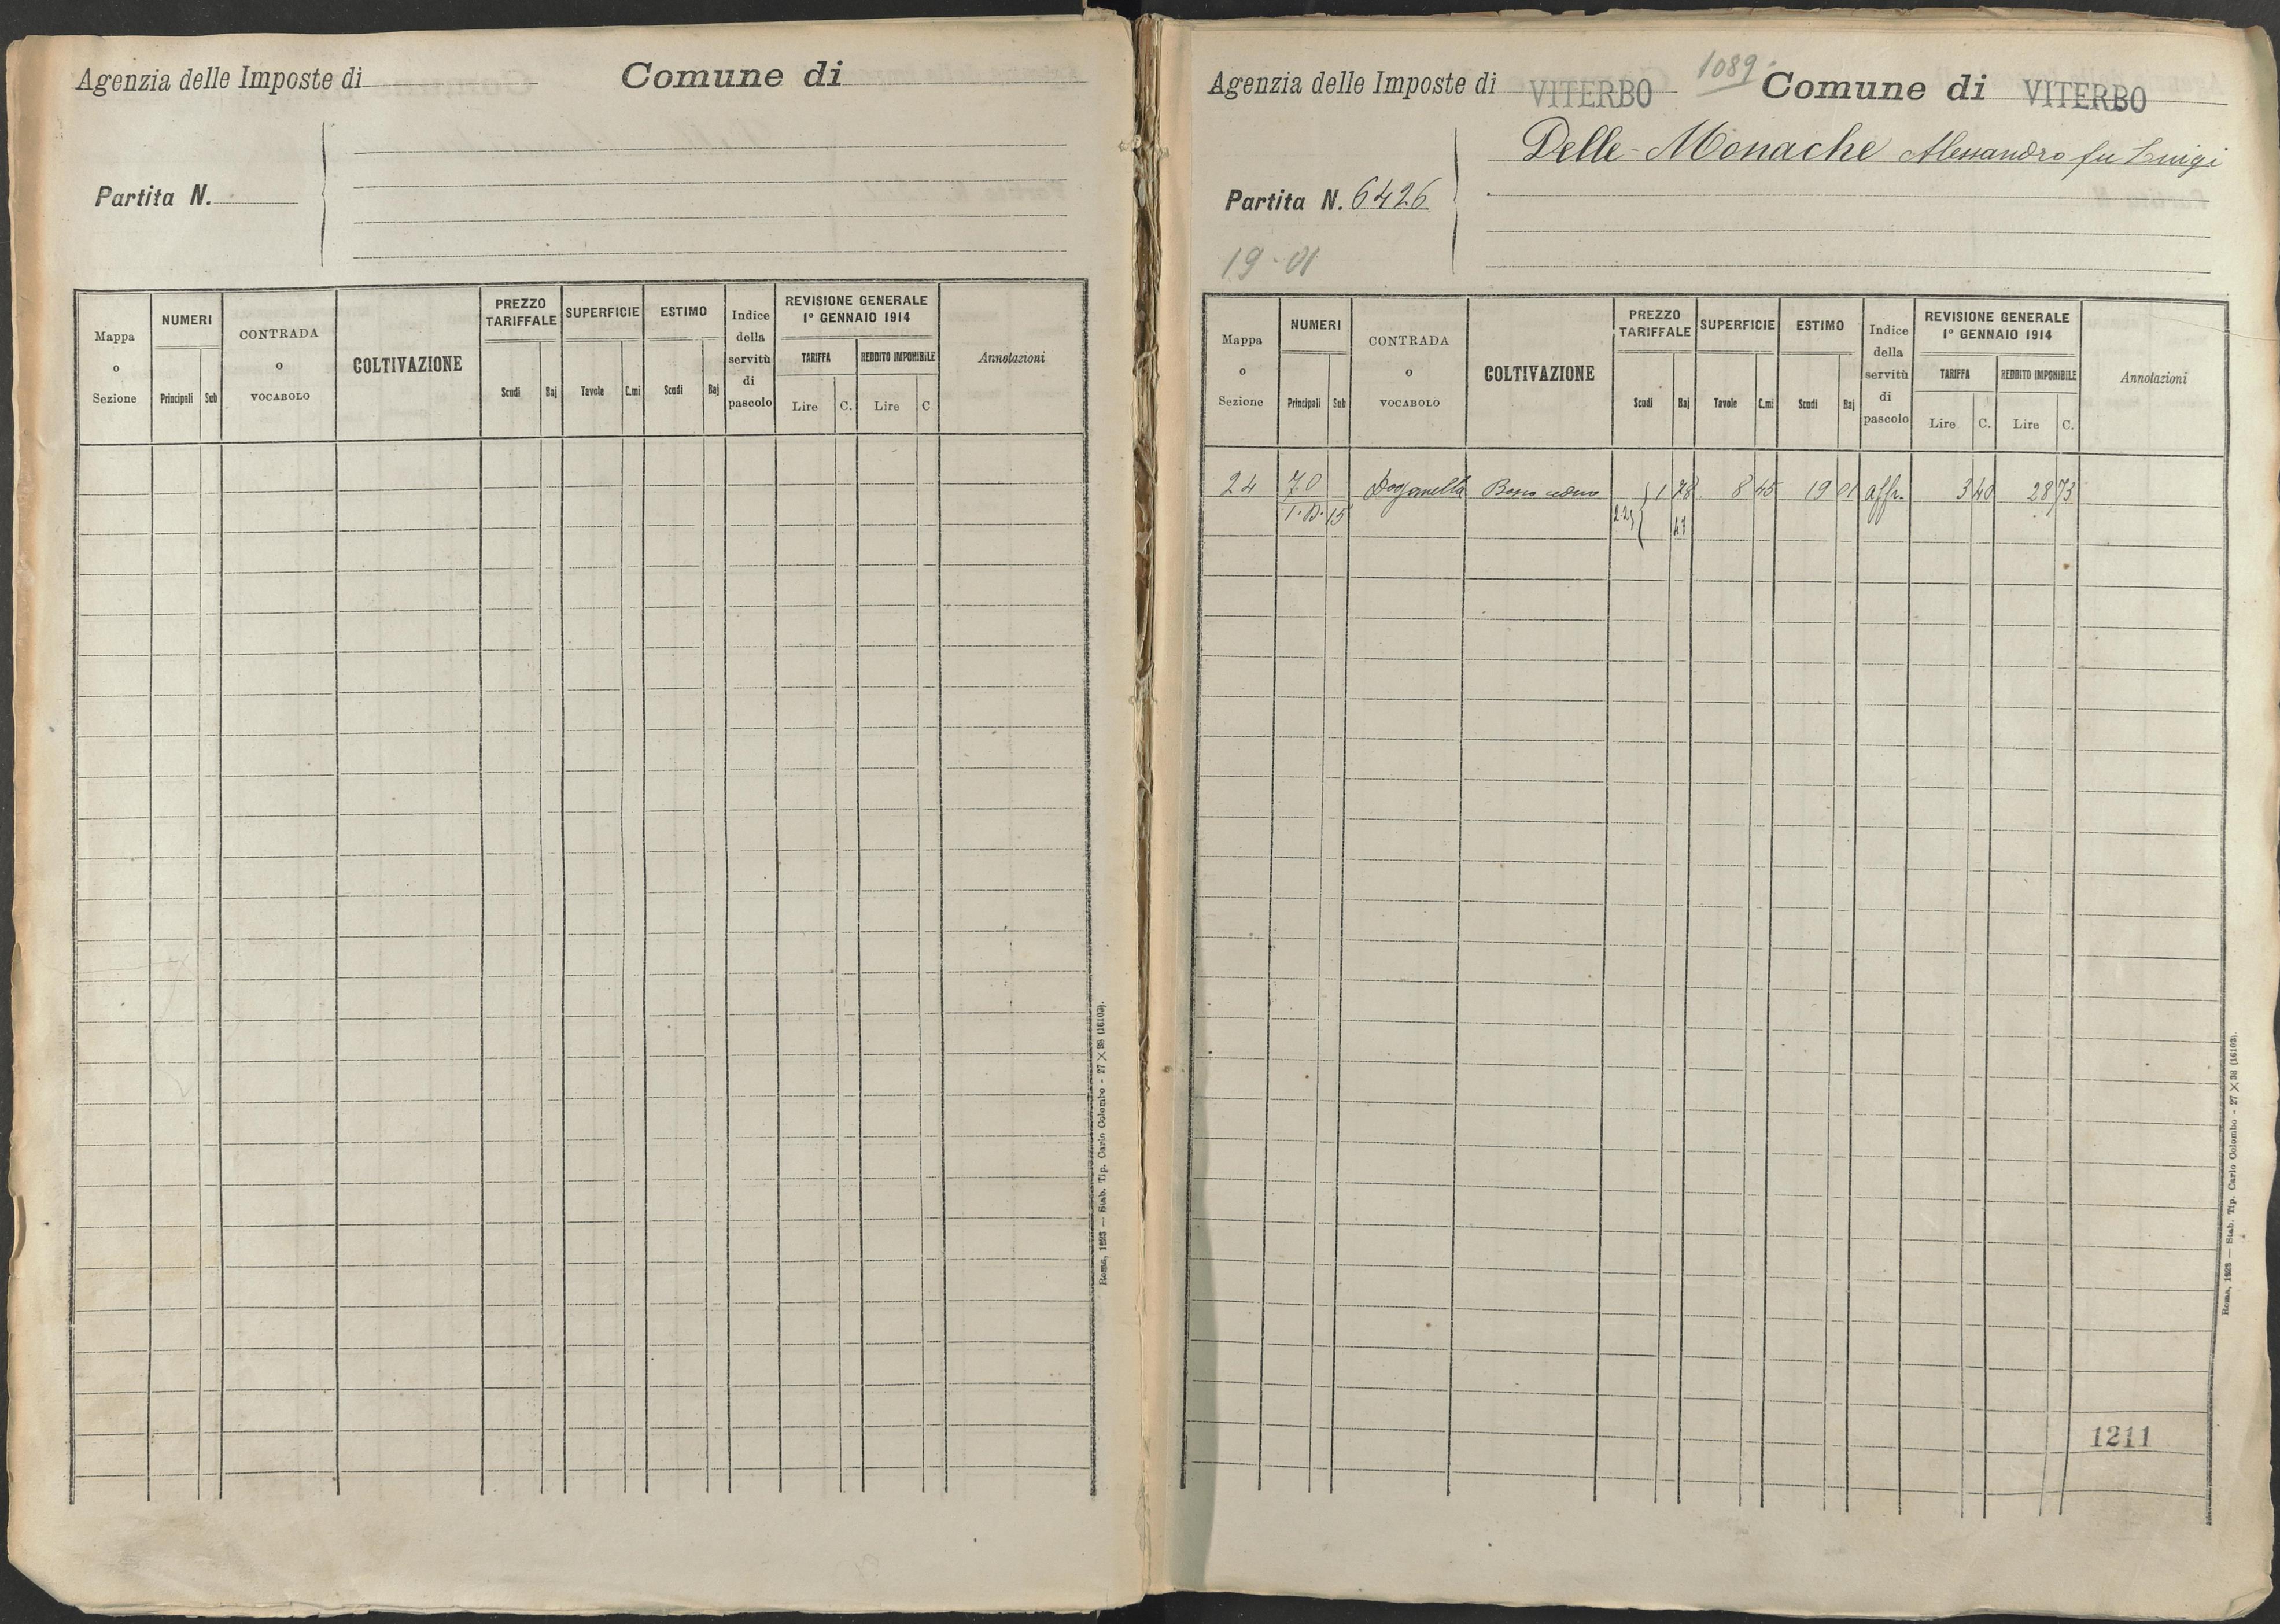 Agenzia delle Imposte di Comune di
Partita N.
Mappa o Sezione
NUMERI
Principali Sub
CONTRADA o VOCABOLO
COLTIVAZIONE
PREZZO TARIFFALE
Scudi Baj
SUPERFICIE
Tavole C.mi
ESTIMO
Scudi Baj
Indice della servitù di pascolo
REVISIONE GENERALE
1° GENNAIO 1914
TARIFFA
Lire C.
REDDITO IMPONIBILE
Lire C
Annotazioni
Roma, 1923 — Stab. Tip. Carlo Colombo - 27 × 38 (16103).
1089
Agenzia delle Imposte di VITERBO Comune di VITERBO
Delle-Monache Alessandro fu Luigi
Partita N. 6426
19-01
Mappa o Sezione
NUMERI
Principali Sub
CONTRADA o VOCABOLO
COLTIVAZIONE
PREZZO TARIFFALE
Scudi Baj
SUPERFICIE
Tavole C.mi
ESTIMO
Scudi Baj
Indice della servitù di pascolo
REVISIONE GENERALE
1° GENNAIO 1914
TARIFFA
Lire C.
REDDITO IMPONIBILE
Lire C.
Annotazioni
24 70 Doganella 1 78 8 45 19 01 affr. 3 40 28 73
15 47
1211
Roma, 1923 — Stab. Tip. Carlo Colombo - 27 × 38 (16103).